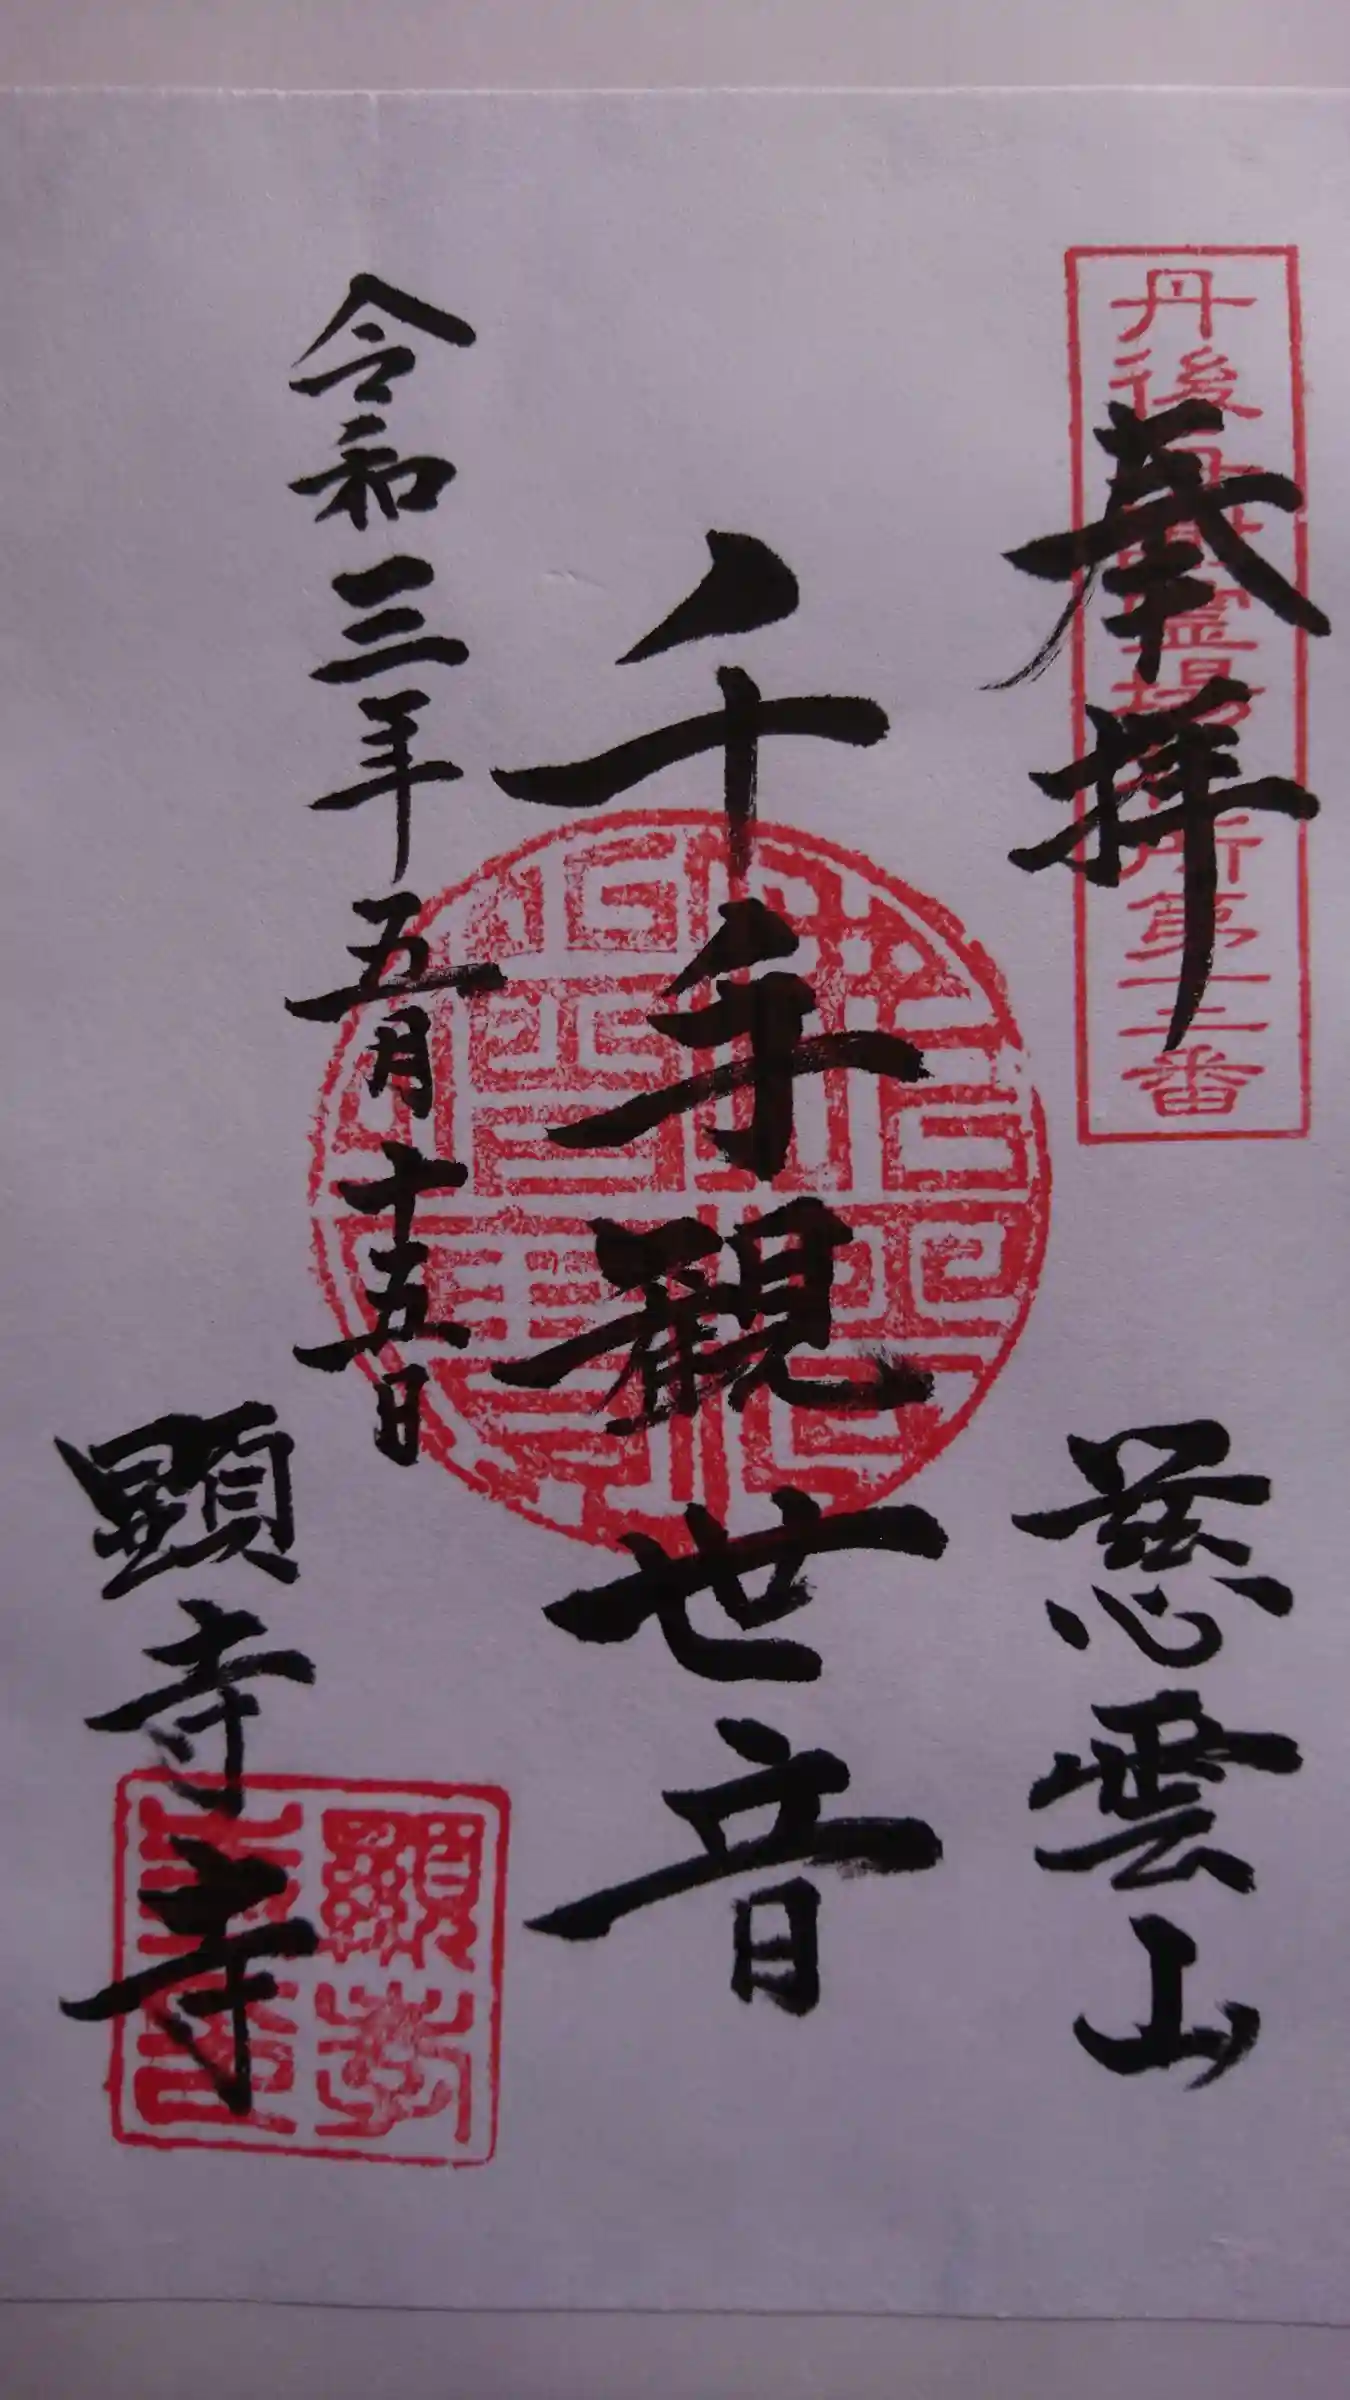 奉拝
丹後 霊場 所第 二番
慈雲山
千手観世音
令和三年五月十五日
顕孝寺
顯孝寺印